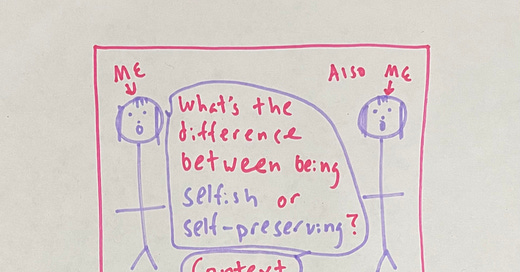 ME
Also ME
What's the
difference
between being
selfish or
self-preserving?
Context